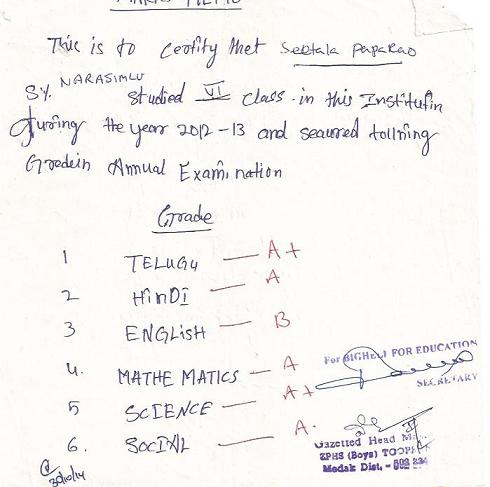 MARKS MEMO
This is to Certify thet Seetala Paparao
S/Y. NARASIMLU
studied VI class in this Institutin
during the year 2012-13 and seaured tollning
Gredein Annual Examination
Grade
1 TELUGU — A+
2 HinDI — A
3 ENGLisH — B
4. MATHEMATICS — A
5 SCIENCE — A+
6. SOCIAL — A.
For BIGHELI FOR EDUCATION
SECRETARY
Gazetted Head
ZPHS (Boys)
Medak Dist. - 502